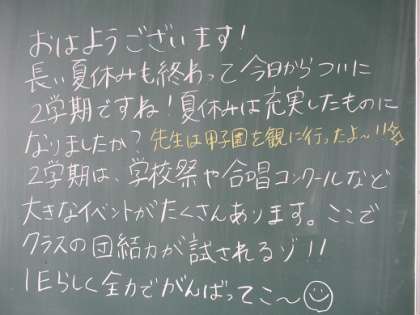 おはようございます!
長い夏休みも終わって今日からついに
2学期ですね!夏休みは充実したものに
なりましたか?先生は甲子園を観に行ったよ〜!!
2学期は、学校祭や合唱コンクールなど
大きなイベントがたくさんあります。ここで
クラスの団結力が試されるゾ!!
1Eらしく全力でがんばってこ〜